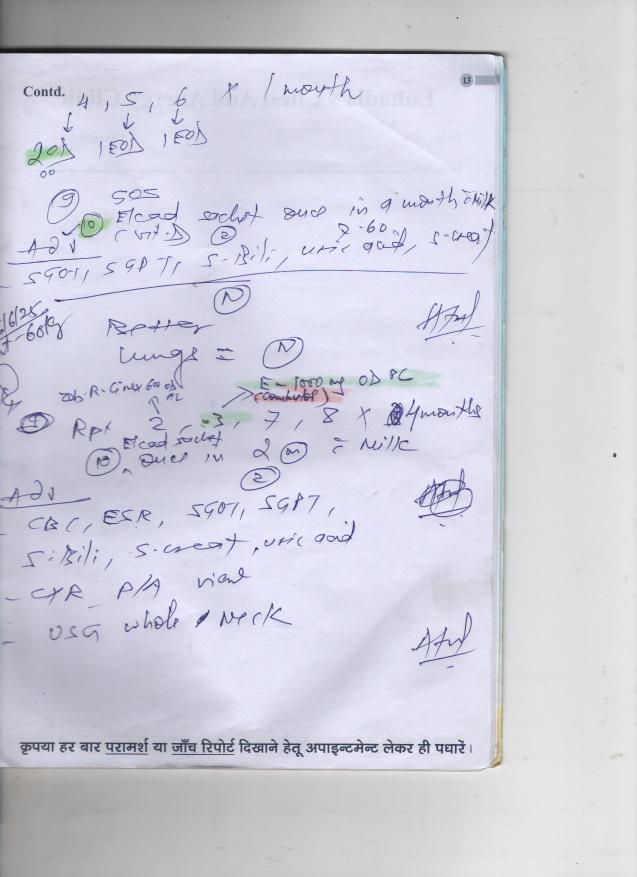 Contd. 13
4, 5, 6 x 1 month
↓ ↓ ↓
2OD 1EOD 1EOD
00
9 SOS
10 Elcad sachet once in a month = Milk
(vit-D) 2
Adv
- SGOT, SGPT, S-Bili, uric acid, S-creat
N
/6/25
Wt-60kg
Better
lungs = N
E-1000 mg OD PC
(Combutol)
Rpt 2, 3, 7, 8 x 4 months
Elcad sachet
10 once in 2 m = Milk
2
Adv
- CBC, ESR, SGOT, SGPT,
S.Bili, S.creat, uric acid
- CXR P/A view
- USG whole Neck
कृपया हर बार परामर्श या जाँच रिपोर्ट दिखाने हेतू अपाइन्टमेन्ट लेकर ही पधारें।